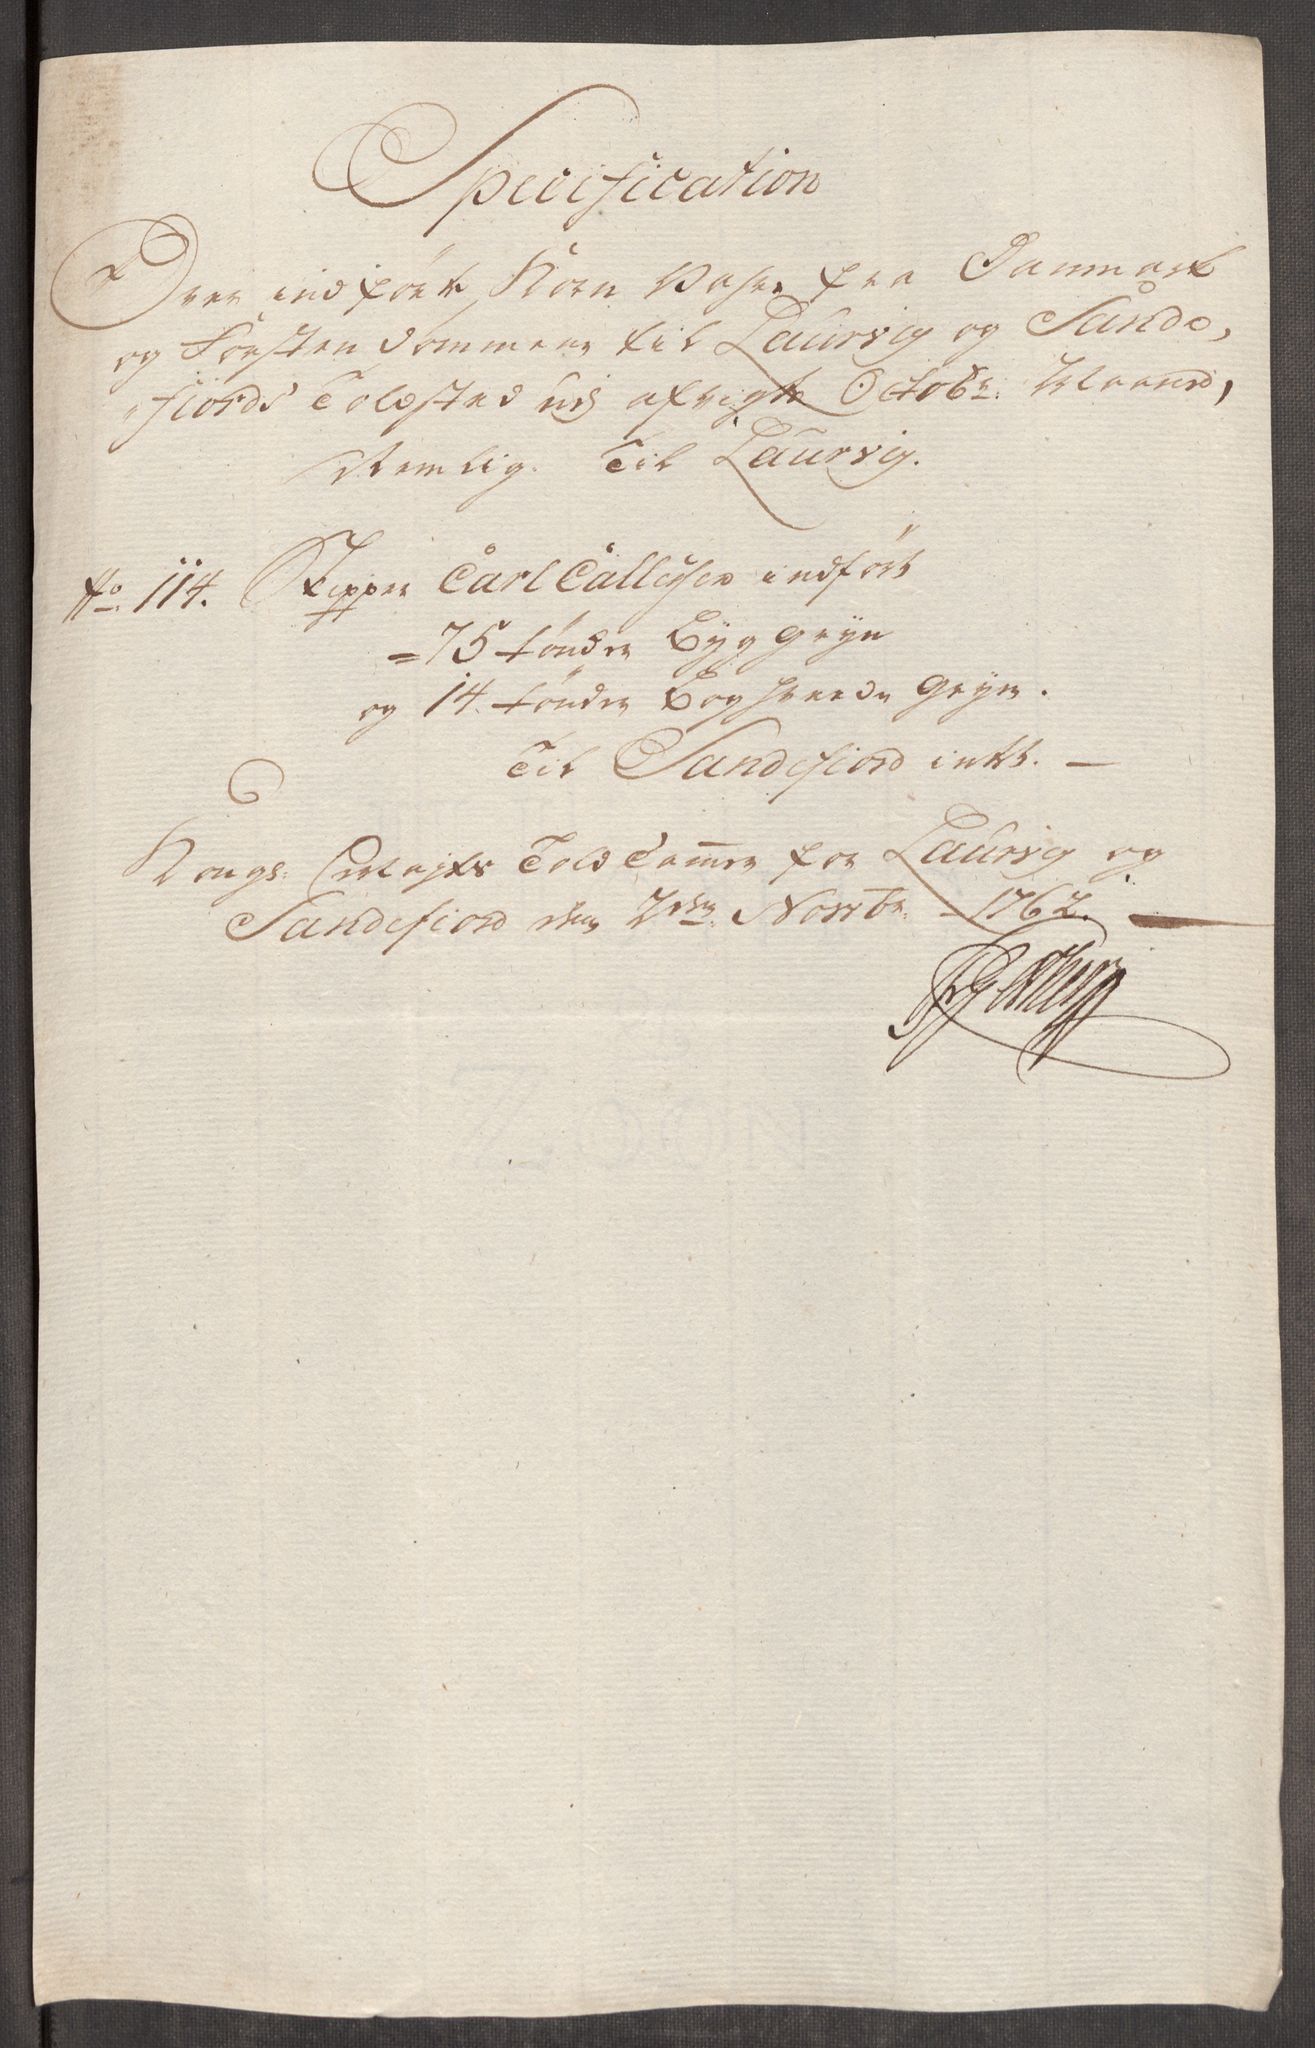 Specification
Over indført Korn Vahre fra Danmark
og Førstendommene til Laurvig og Sande,
fiords Toldsted udj afvigte Octobr: Maaned,
Nemlig. Til Laurvig.
No. 114. Skipper Carl Callisen indført
= 75 tønder Byg gryn
og 14. tønder Boghvede gryn.
Til Sandefiord intet. —
Kongs: Mayts Told Cammer for Laurvig og
Sandefiord den 2den Novbr. 1762.